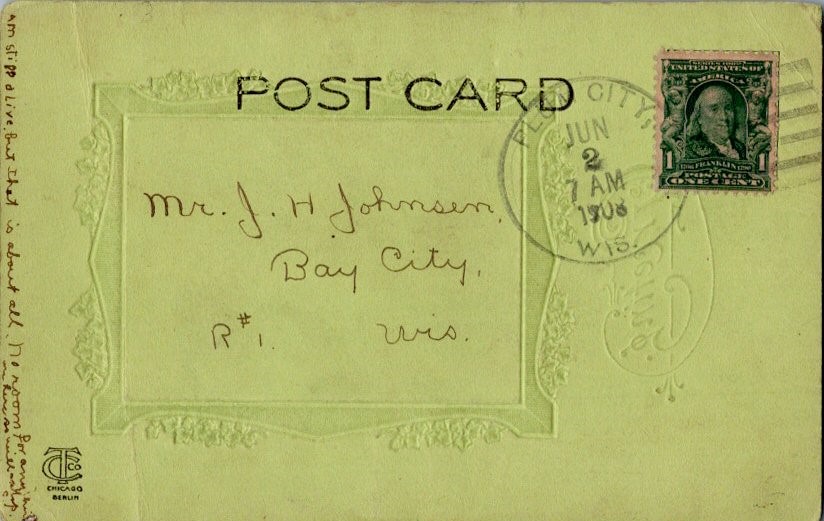 POST CARD
PLUM CITY,
JUN
2
7 AM
1908
WIS.
SERIES 1902
UNITED STATES OF
AMERICA
1706 FRANKLIN 1790
1 POSTAGE 1
ONE CENT
Mr. J. H Johnsen,
Bay City,
R#1. Wis.
am still alive but that is about all. No room for any
so will stop.
Greetings
CTCo
CHICAGO
BERLIN